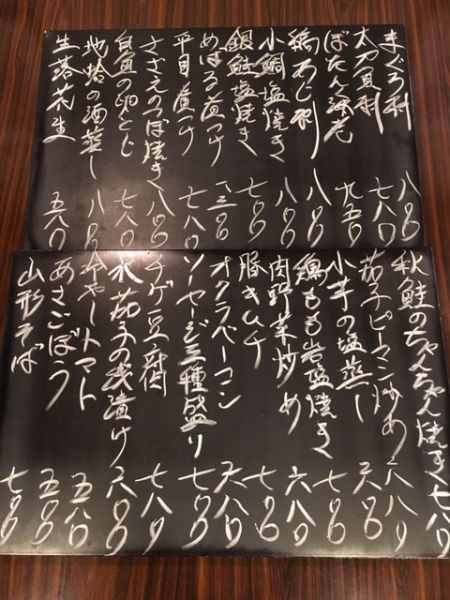 まぐろ刺 八〇〇
太刀魚刺 七八〇
ぼたん海老 九五〇
縞あじ刺 八〇〇
小鯛塩焼き 八〇〇
銀鮭塩焼き 七〇〇
めぼろ煮つけ 一、三〇〇
平目煮つけ 七八〇
さざえのつぼ焼き 八〇〇
白魚の卵とじ 七八〇
地蛤の酒蒸し 八〇〇
生落花生 五八〇
秋鮭のちゃんちゃん焼き 七八〇
茄子ピーマン炒め 六八〇
小芋の塩蒸し 六〇〇
鶏もも岩塩焼き 七〇〇
肉野菜炒め 六八〇
豚キムチ 七〇〇
オクラベーコン 六八〇
ソーセージ三種盛り 七〇〇
チゲ豆腐 七八〇
水茄子の浅漬け 六〇〇
冷やしトマト 五八〇
あさごぼう 五〇〇
山形そば 七〇〇